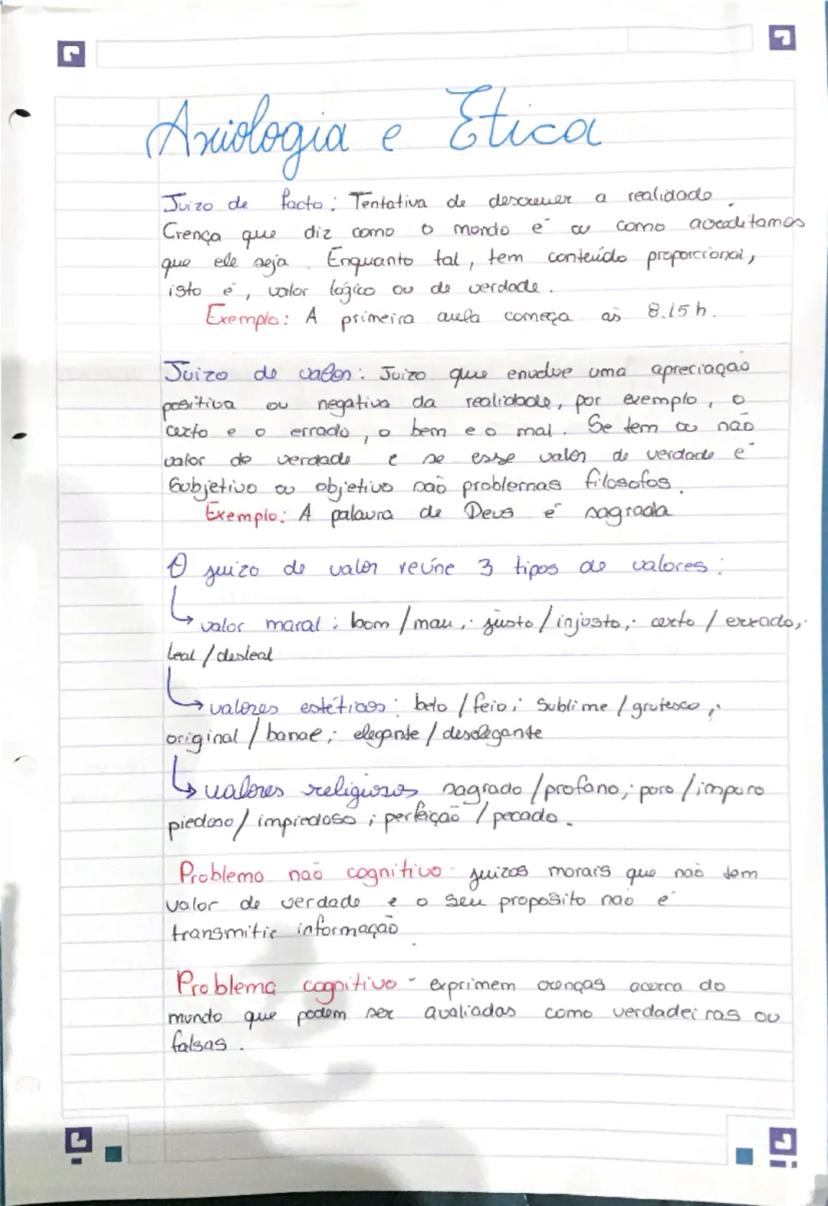 Axiologia e Ética
Juizo de facto: Tentativa de descrever a realidade.
Crença que diz como o mundo é ou como acreditamos
que ele seja. Enquanto tal, tem conteúdo proporcional,
isto é, valor lógico ou de verdade.
Exemplo: A primeira aula começa às 8.15h.
Juizo de valor: Juizo que envolve uma apreciação
positiva ou negativa da realidade, por exemplo, o
certo e o errado, o bem e o mal. Se tem ou não
valor de verdade e se esse valor de verdade é
subjetivo ou objetivo são problemas filosofos.
Exemplo: A palavra de Deus é sagrada
O juizo de valor reúne 3 tipos de valores:
valor maral: bom/mau; justo/injosto; certo/errado;
leal/desleal
valores estéticos: belo/feio; sublime/grutesco;
original/banal; elegante/deselegante
valores religiosos sagrado/profano; poro/impuro
piedoso/impiedoso; perfeição/pecado.
Problema não cognitivo - juizos morais que não tem
valor de verdade e o seu propósito não é
transmitir informação.
Problema cognitivo - exprimem crenças acerca do
mundo que podem ser avaliadas como verdadeiras ou
falsas.